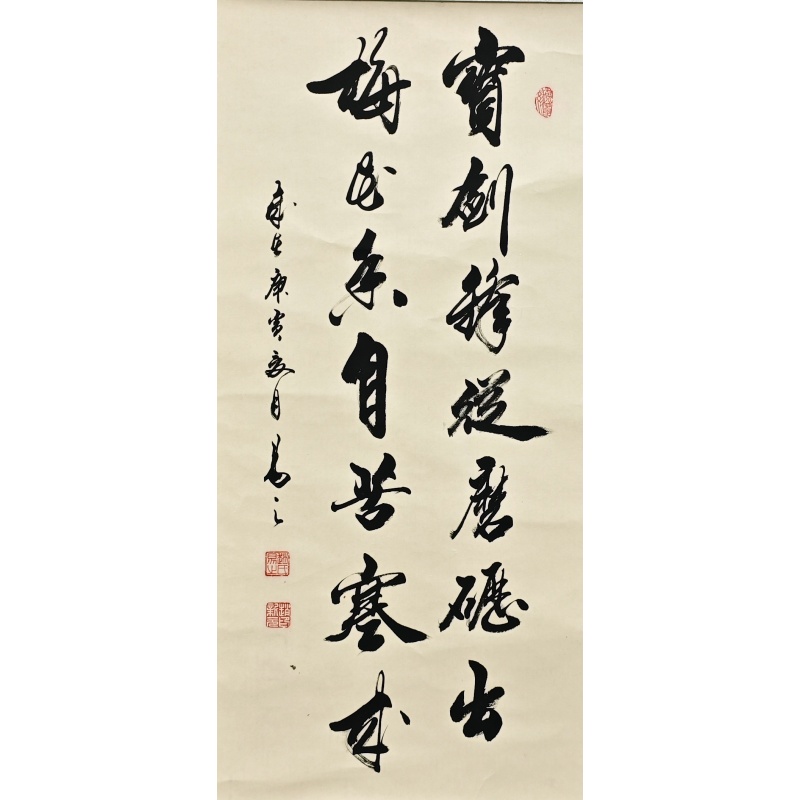 寶劍鋒從磨礪出
梅花香自苦寒来
歲在庚寅夏月易之